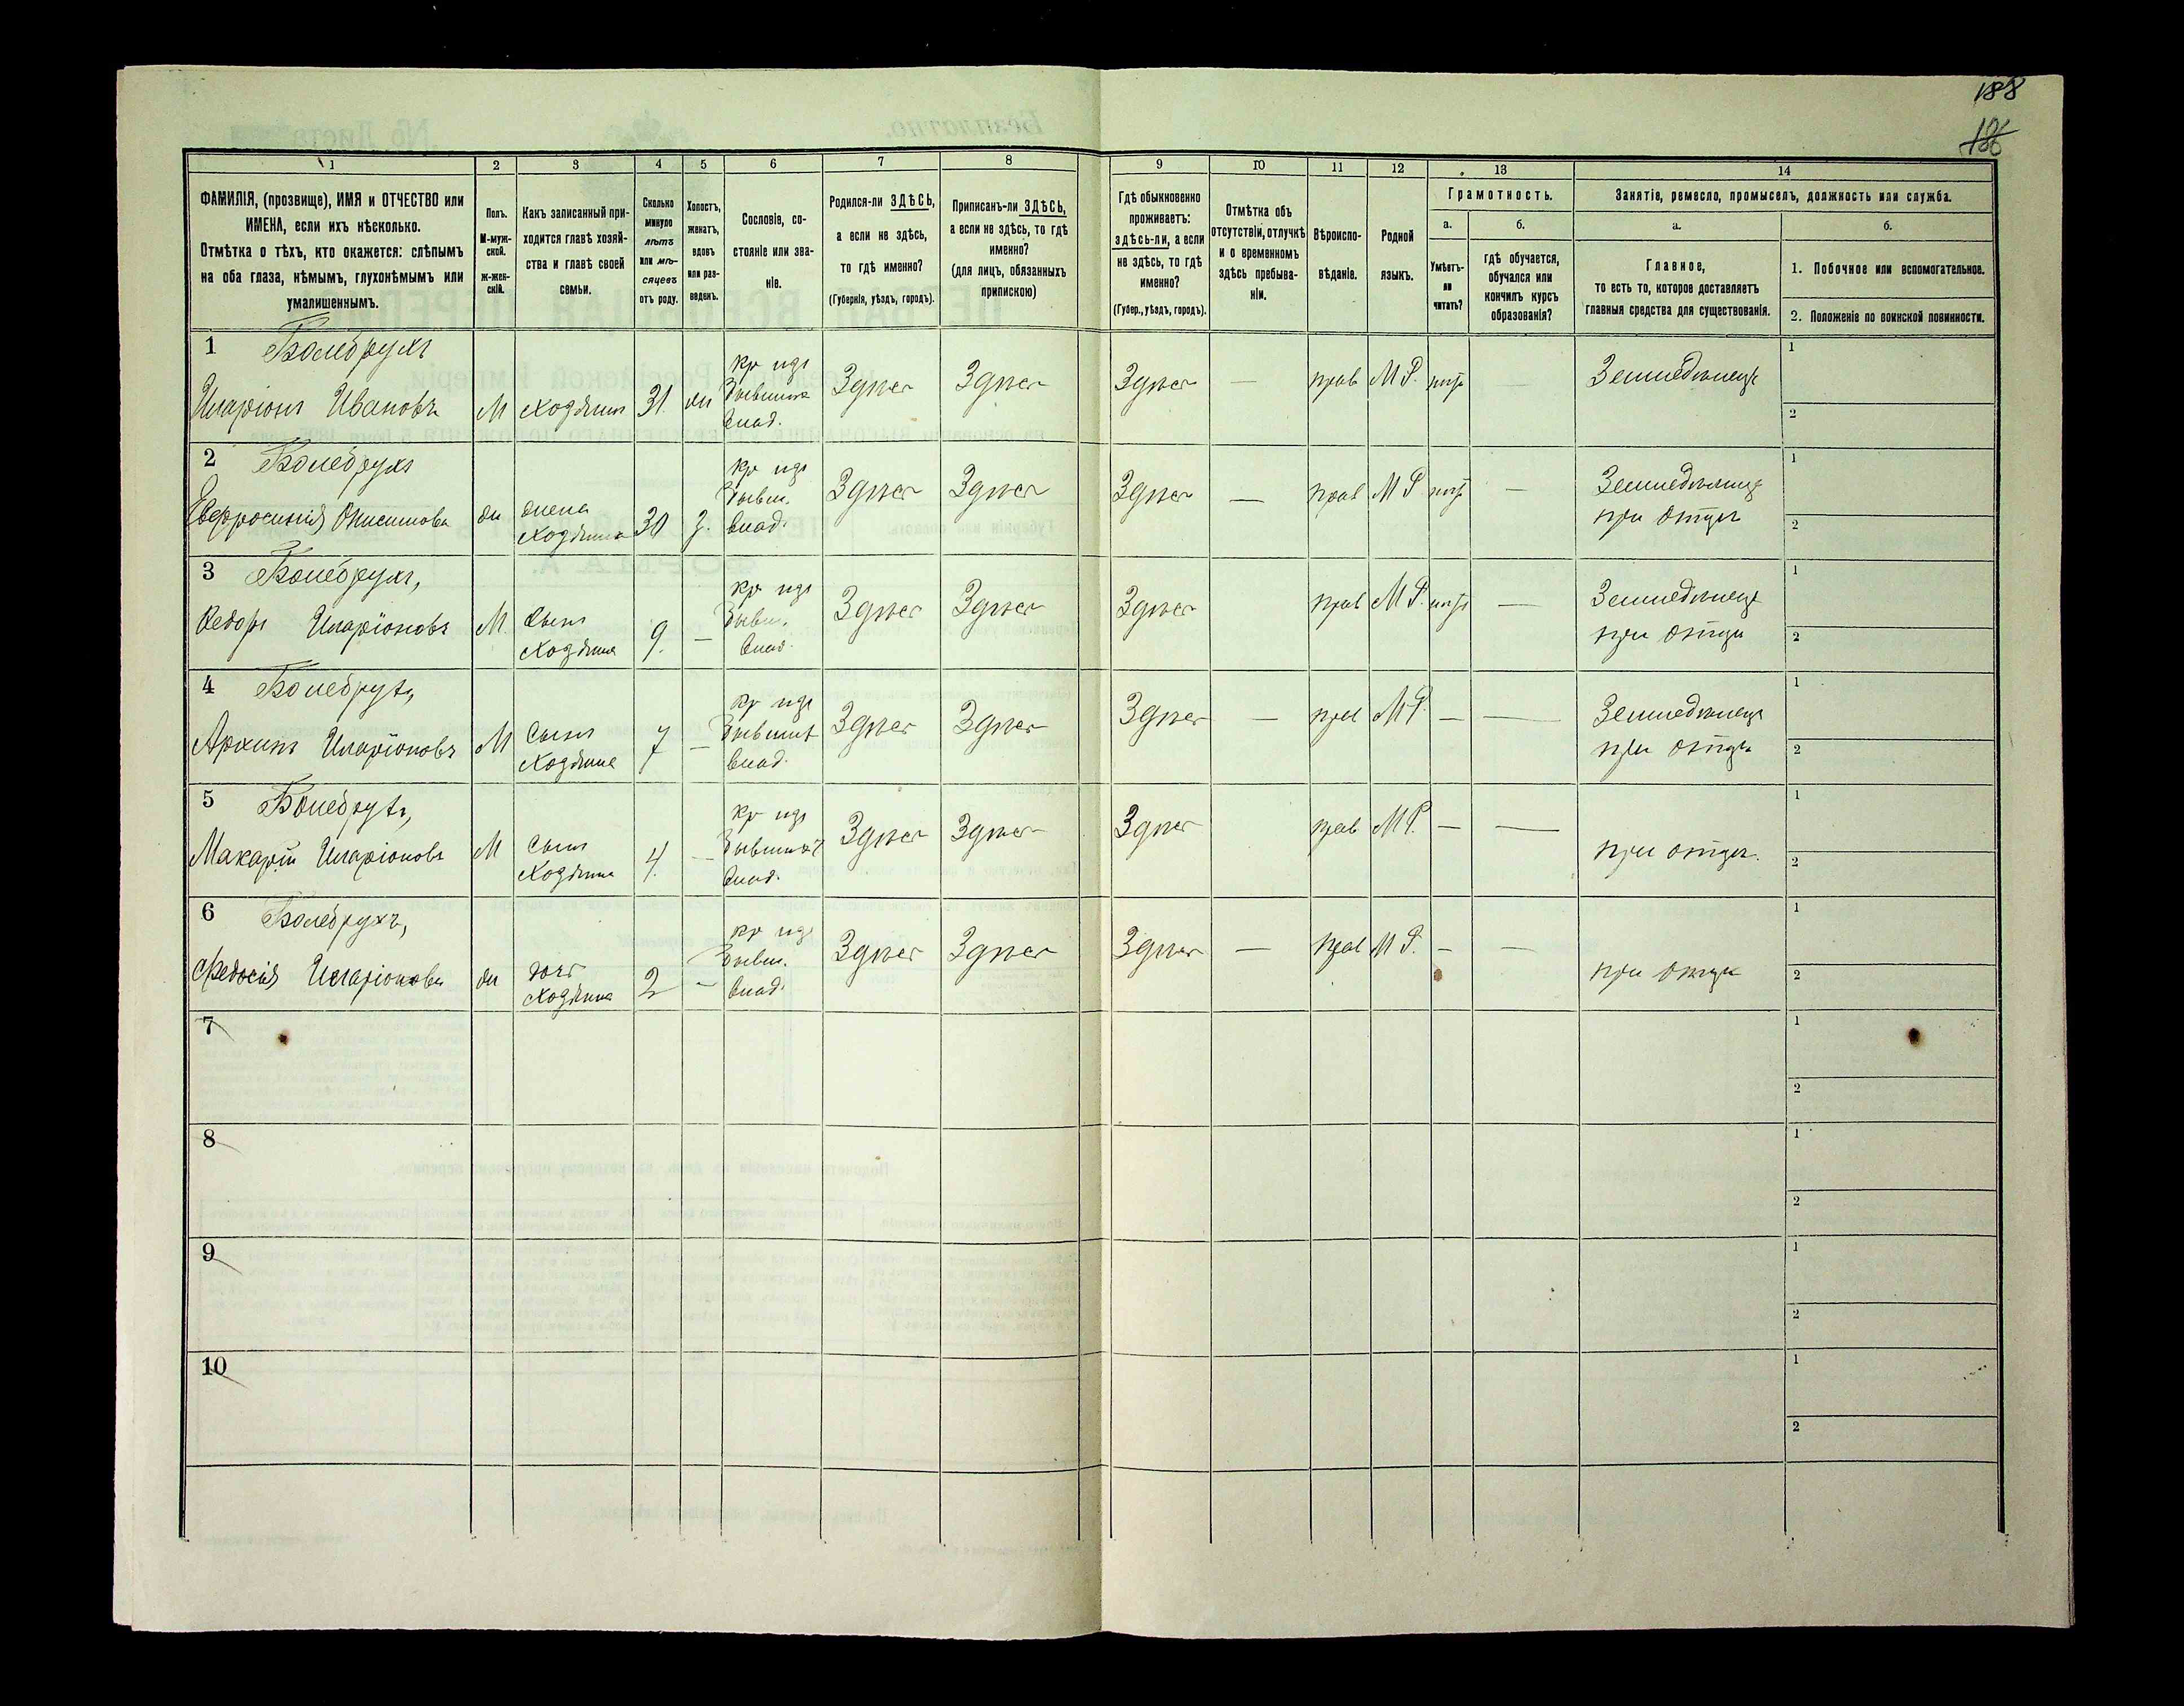 188
186
1
2
3
4
5
6
7
8
9
10
11
12
13
14
ФАМИЛІЯ, (прозвище), ИМЯ и ОТЧЕСТВО или
ИМЕНА, если ихъ нѣсколько.
Отмѣтка о тѣхъ, кто окажется: слѣпымъ
на оба глаза, нѣмымъ, глухонѣмымъ или
умалишеннымъ.
Полъ.
М-муж-
ской.
ж-жен-
скій.
Какъ записанный при-
ходится главѣ хозяй-
ства и главѣ своей
семьи.
Сколько
минуло
лѣтъ
или мѣ-
сяцевъ
отъ роду.
Холостъ,
женатъ,
вдовъ
или раз-
веденъ.
Сословіе, со-
стояніе или зва-
ніе.
Родился-ли ЗДѢСЬ,
а если не здѣсь,
то гдѣ именно?
(Губернія, уѣздъ, городъ).
Приписанъ-ли ЗДѢСЬ,
а если не здѣсь, то гдѣ
именно?
(для лицъ, обязанныхъ
припискою)
Гдѣ обыкновенно
проживаетъ:
здѣсь-ли, а если
не здѣсь, то гдѣ
именно?
(Губер., уѣздъ, городъ).
Отмѣтка объ
отсутствіи, отлучкѣ
и о временномъ
здѣсь пребыва-
ніи.
Вѣроиспо-
вѣданіе.
Родной
языкъ.
Грамотность.
а.
Умѣетъ-
ли
читать?
б.
гдѣ обучается,
обучался или
кончилъ курсъ
образованія?
Занятіе, ремесло, промыселъ, должность или служба.
а.
Главное,
то есть то, которое доставляетъ
главныя средства для существованія.
б.
1. Побочное или вспомогательное.
2. Положеніе по воинской повинности.
1 Болебрухъ
Иларіонъ Ивановъ
М
Хозяинъ
31
жн
кр изъ
бывших
влад.
Здѣсь
Здѣсь
Здѣсь
—
прав
М Р.
Земледѣлецъ
1
2
2 Болебрухъ
Евфросинія Онисимова
жн
жена
хозяина
30
з.
кр изъ
бывш.
влад.
Здѣсь
Здѣсь
Здѣсь
—
прав
М Р
—
Земледѣлецъ
при отцѣ
1
2
3 Болебрухъ,
Ѳедоръ Иларіоновъ
М.
Сынъ
хозяина
9.
—
кр изъ
бывш.
влад.
Здѣсь
Здѣсь
Здѣсь
прав
М Р.
—
Земледѣлецъ
при отцѣ
1
2
4 Болебрухъ,
Архипъ Иларіоновъ
М
Сынъ
хозяина
7
—
кр изъ
бывших
влад.
Здѣсь
Здѣсь
Здѣсь
—
прав
М Р.
—
—
Земледѣлецъ
при отцѣ
1
2
5 Болебрухъ,
Макарій Иларіоновъ
М
Сынъ
хозяина
4.
—
кр изъ
бывшихъ
влад.
Здѣсь
Здѣсь
Здѣсь
прав
М Р.
—
—
при отцѣ.
1
2
6 Болебрухъ,
Федосія Иларіонова
жн
дочь
хозяина
2
—
кр изъ
бывш.
влад.
Здѣсь
Здѣсь
Здѣсь
—
прав
М Р.
—
—
при отцѣ
1
2
7
1
2
8
1
2
9
1
2
10
1
2